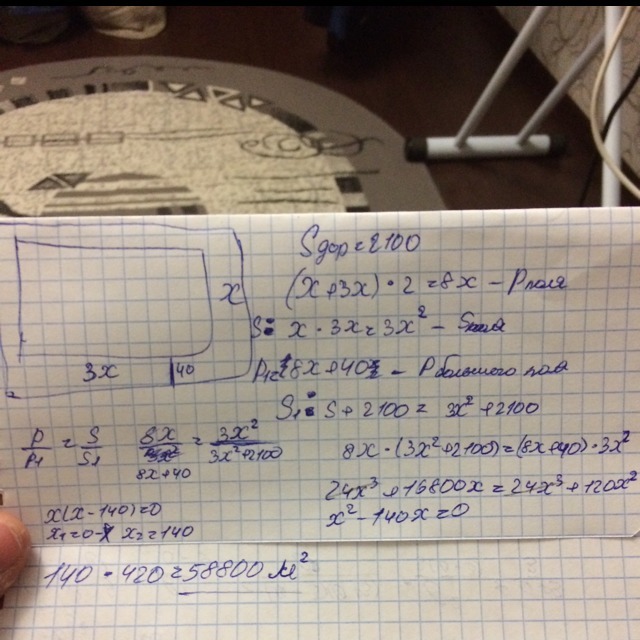 Sдор = 2100
(x+3x)·2 = 8x – Pполя
x
S = x·3x = 3x² – Sполя
3x
40
P₁ = 8x+40 – Pбольшого поля
S₁ = S+2100 = 3x²+2100
P/P₁ = S/S₁
8x/8x+40 = 3x²/3x²+2100
8x·(3x²+2100) = (8x+40)·3x²
24x³+16800x = 24x³+120x²
x²-140x=0
x(x-140)=0
x₁=0 x₂=140
140·420=58800 м²